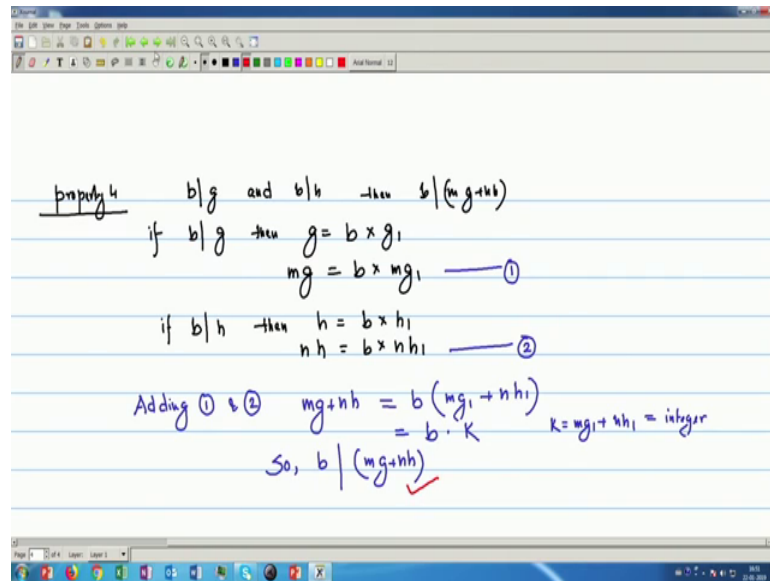 Journal
File Edit View Page Tools Options Help
Arial Normal 12
property 4 b|g and b|h then b|(mg+nh)
if b|g then g = b × g₁
mg = b × mg₁ ①
if b|h then h = b × h₁
nh = b × nh₁ ②
Adding ① & ② mg+nh = b(mg₁ + nh₁)
= b · K K = mg₁ + nh₁ = integer
So, b | (mg+nh)
Page 4 of 4 Layer: Layer 1